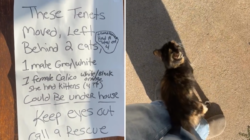 These Tenets
Moved, Left
Behind 2 cats,
1 male Gray/white
1 female Calico
She had Kittens
Could be under house
Keep eyes out
call a Rescue